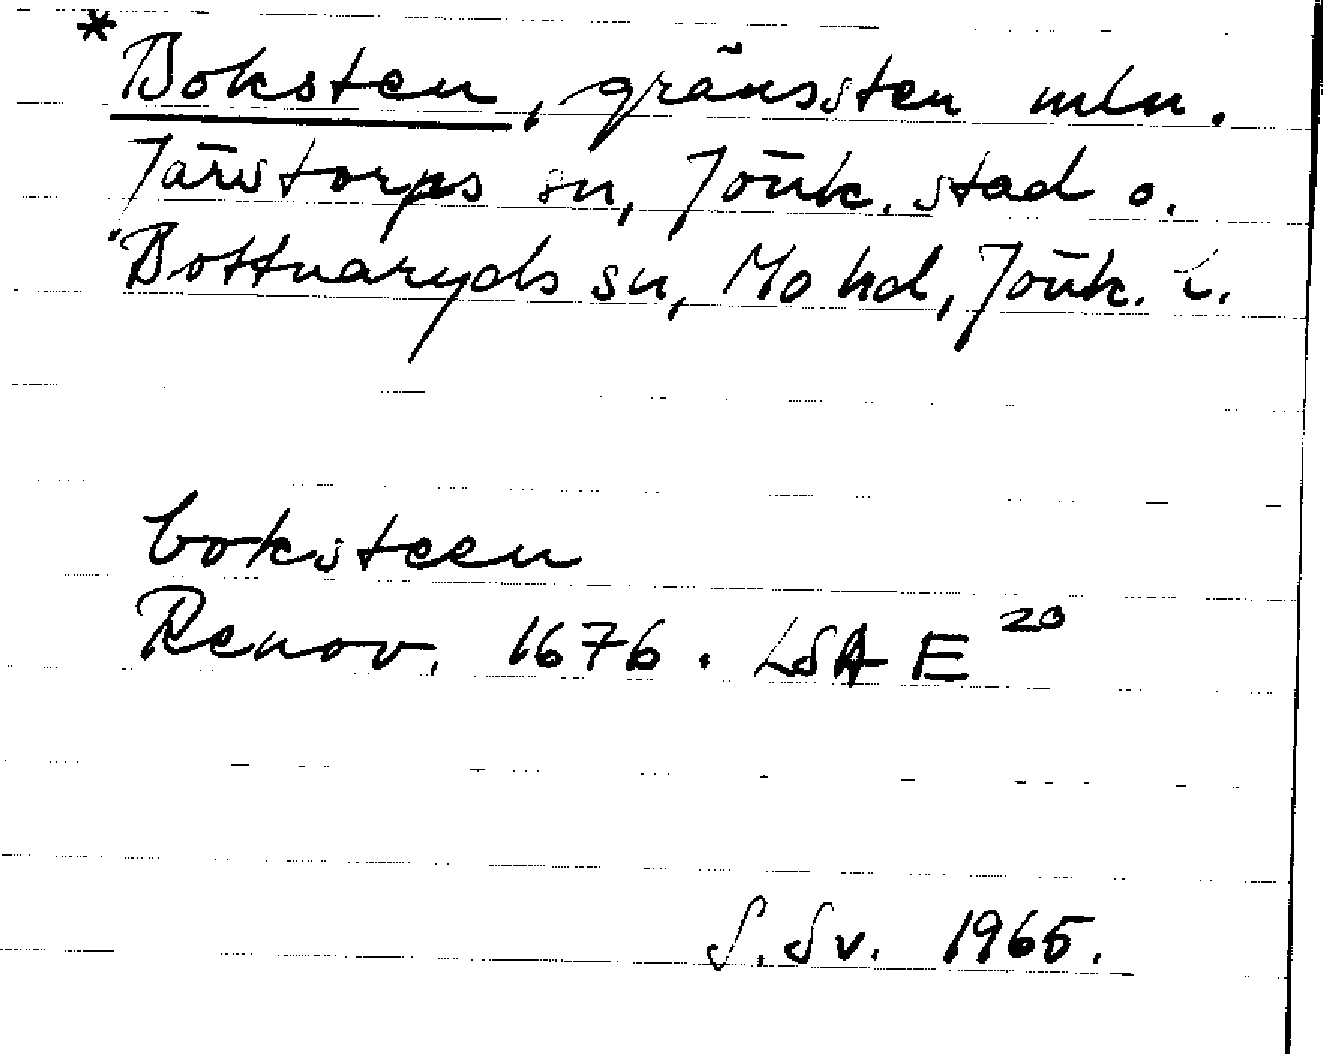 * Boksten, gränssten mln.
Järstorps sn, Jönk. stad o.
Bottnaryds sn, Mo hd, Jönk. l.
boksteen
Renov. 1676. LSA E 20
S. Sv. 1965.